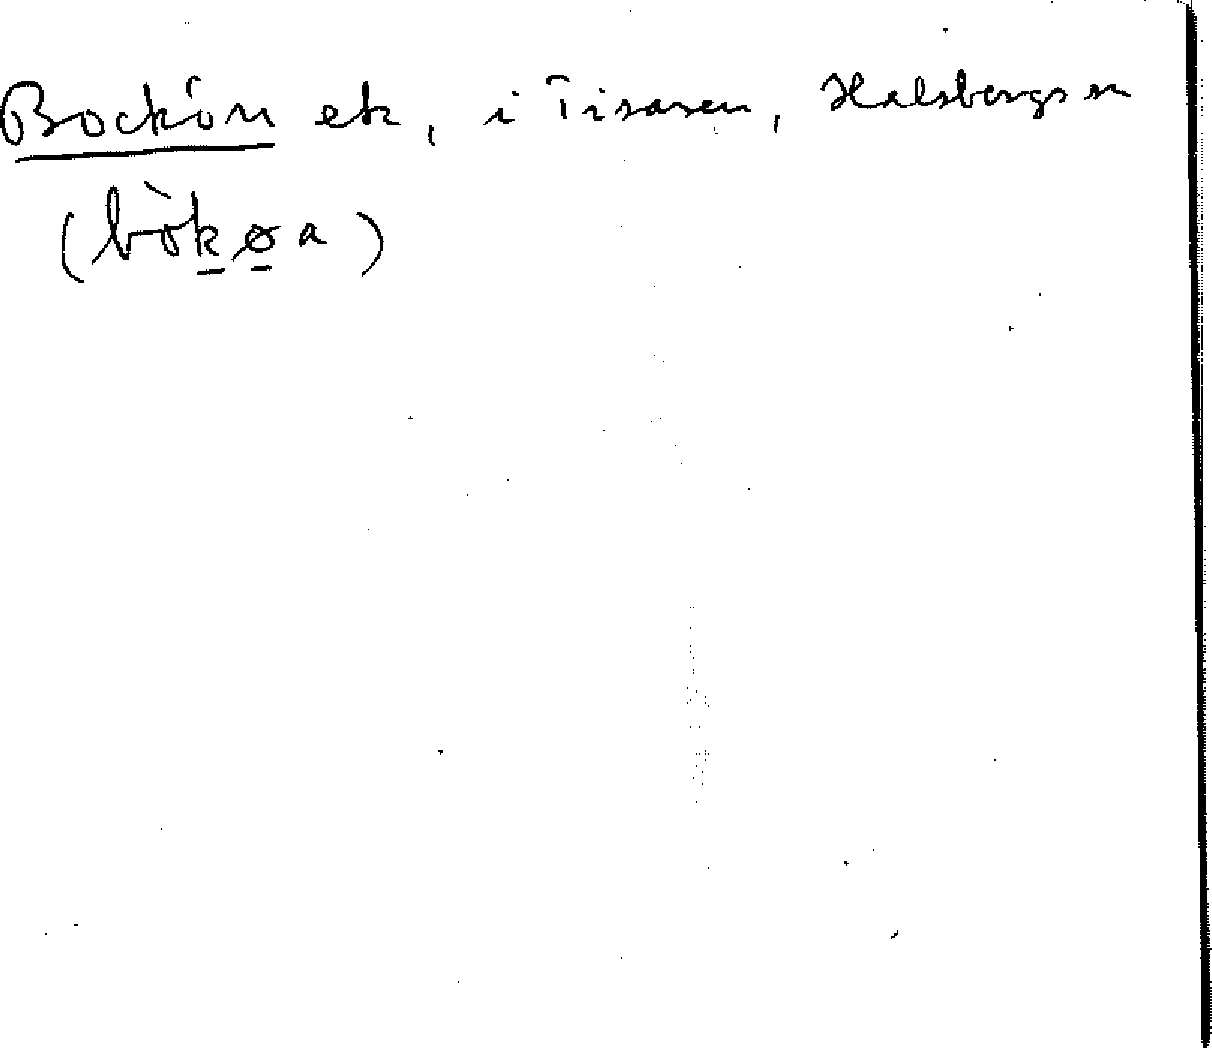 Bockön ek, i Tisaren, Halsbergs sn
(bòkøa)